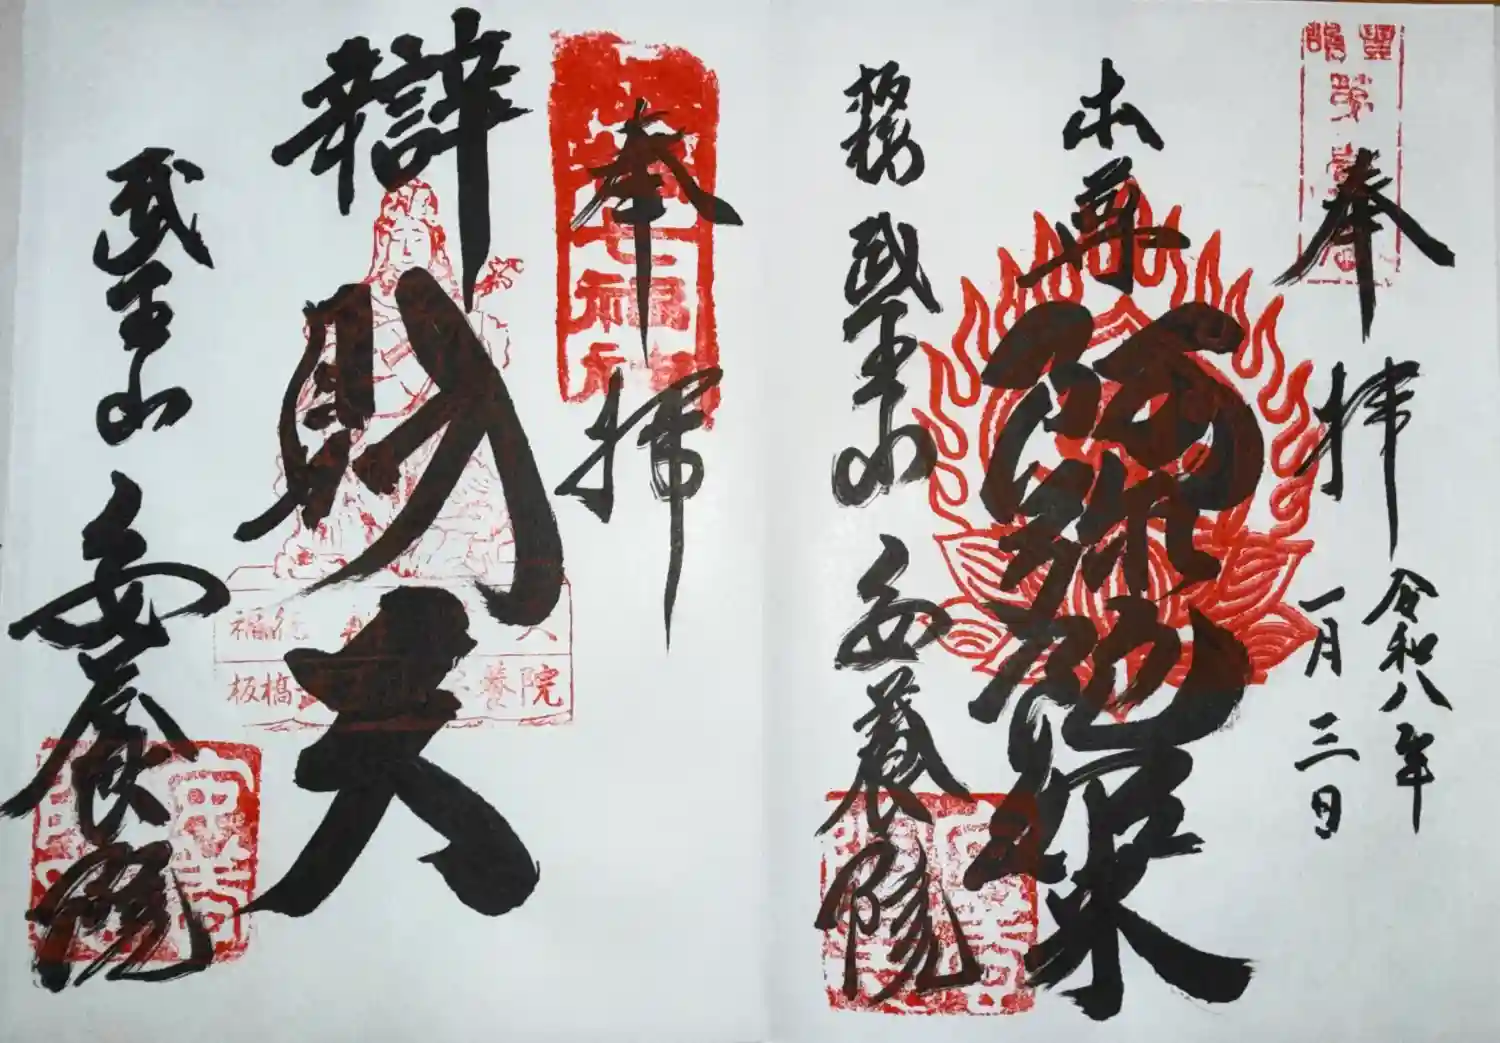 奉拝
令和八年
一月三日
本尊
阿弥陀如来
板橋
武王山
安養院
奉拝
七福神
辯財天
福徳
板橋
養院
武王山
安養院